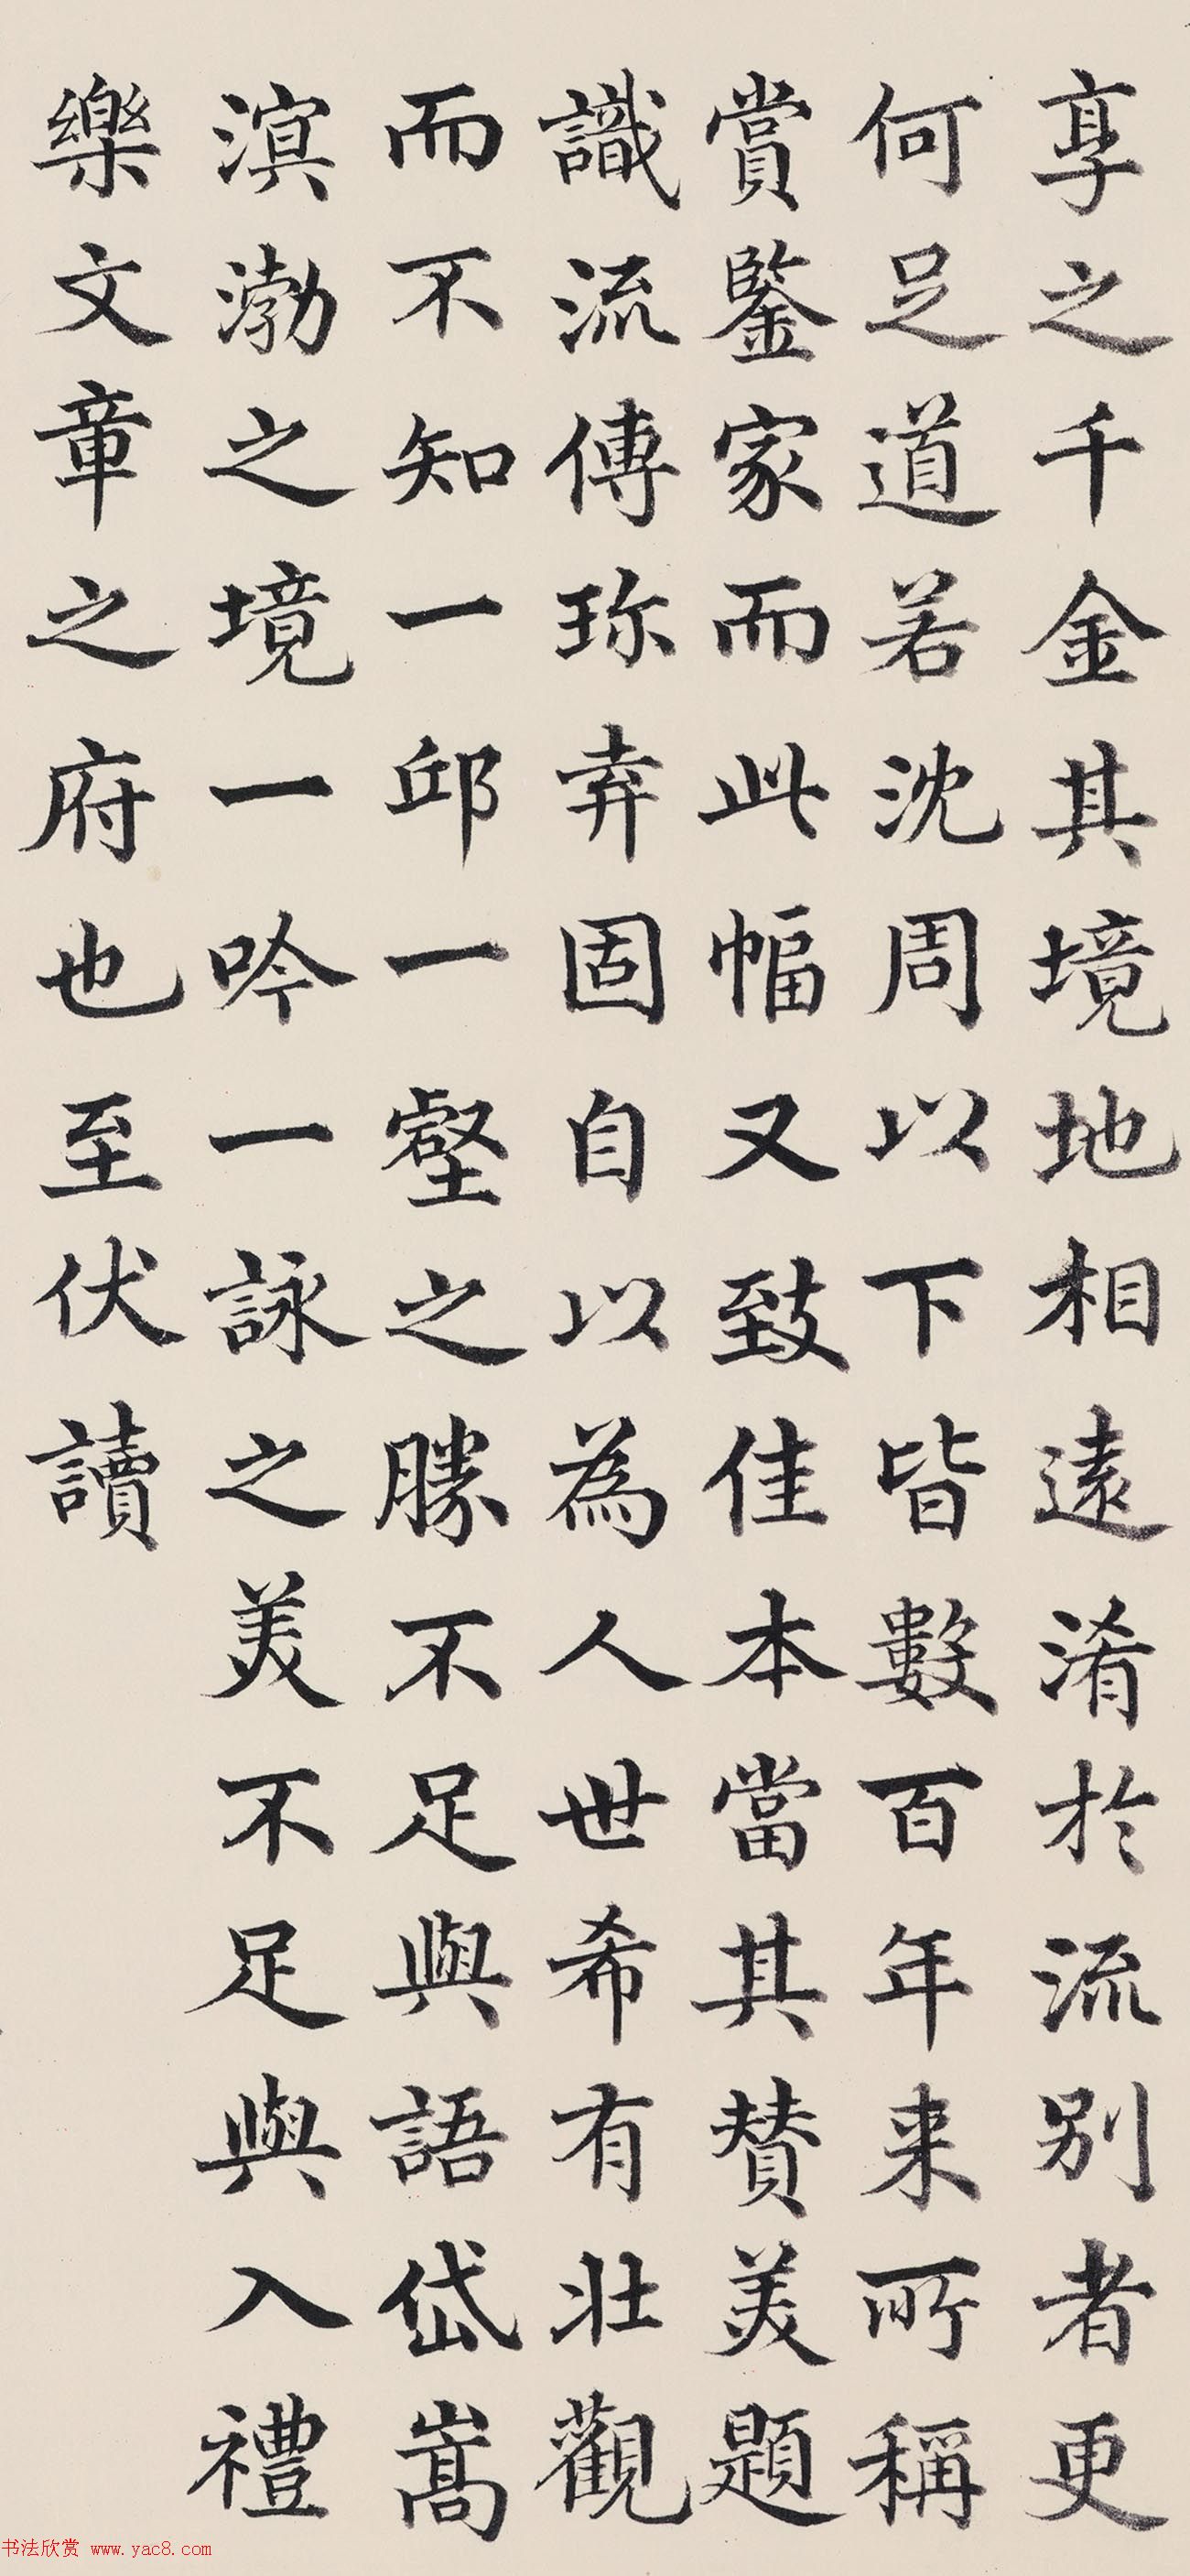 享之千金其境地相遠淆於流別者更
何足道若沈周以下皆數百年来所稱
賞鑒家而此幅又致佳本當其賛美題
識流傳珎幸固自以為人世希有壯觀
而不知一邱一壑之勝不足與語岱嵩
溟渤之境一吟一詠之美不足與入禮
樂文章之府也至伏讀
书法欣赏 www.yac8.com